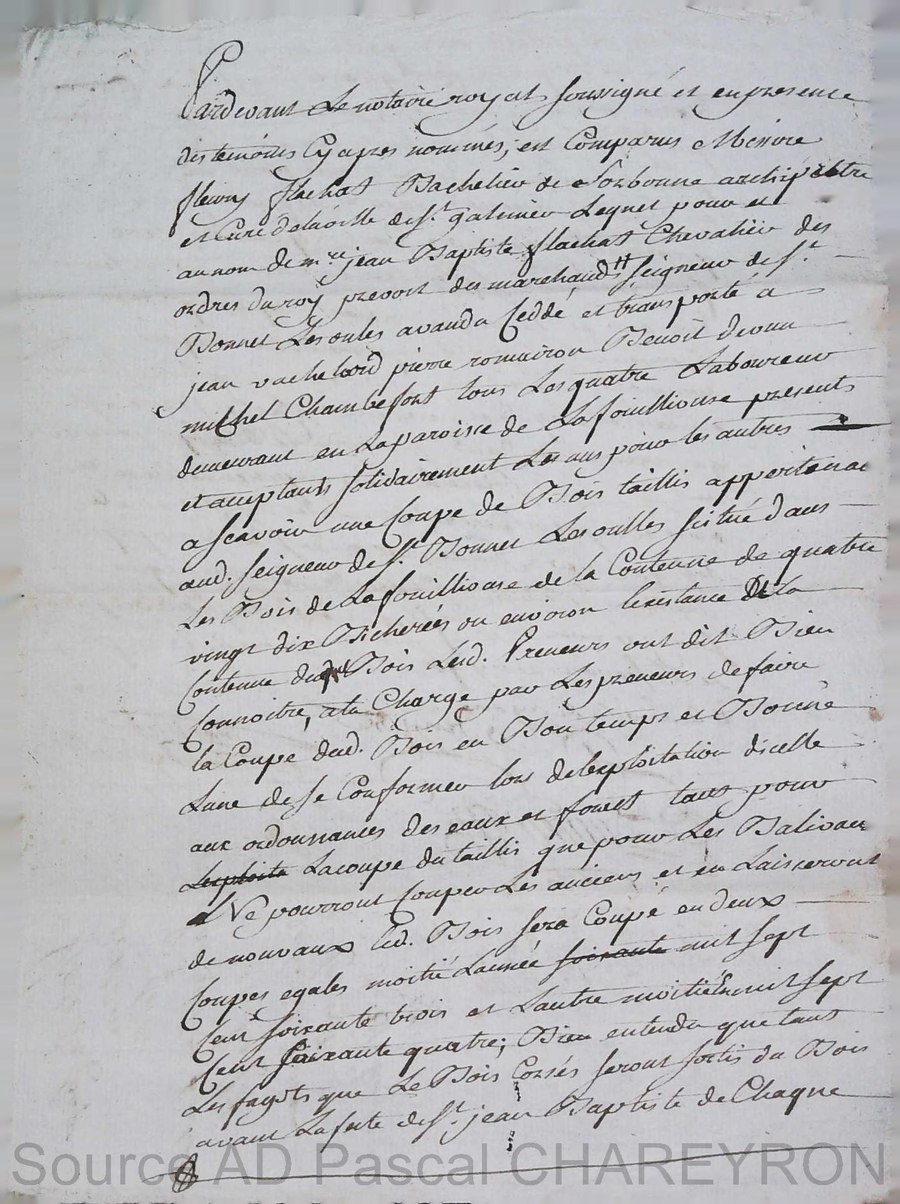 Pardevant Le notaire royal soussigné et en presence
des temoins Cy apres nommés, est Comparus Messire
fleury flachat Bachelier de Sorbonne archiprêtre
et Curé de St galmier Lequel pour et
au nom de mre jean Baptiste flachat Chevalier des
ordres du roy prevost des marchands seigneur de St
Bonnet Les oules a vandu Ceddé et transporté à
jean vachelard pierre romairon Benoit
michel Chambefort tous Les quatre Laboureur
demeurant en La paroisse de La fouilliouse present
et acceptants solidairement Les uns pour les autres
a scavoir une Coupe de Bois taillis appertenac
aud. seigneur de St Bonnet Les oulles scitué dans
Les Bois de La fouilliouse de la Contenue de quatre
vingt dix Bicherées ou environ De La
Contenue dud. Bois Lesd. Preneurs ont dit Bien
Connoitre, a la Charge par Les preneurs de faire
la Coupe dud. Bois en Bon temps et Bonne
Lune de se Conformer lors de lexploitation dicelle
aux ordonnances des eaux et forest tant pour
Lexploite La coupe du taillis que pour Les Balivaux
Ne pourront Couper Les anciens et en Laisseront
de nouvaux Led. Bois sera Coupé en deux
Coupes egales moitié Lannée soixante mil sept
Cent soixante trois et Lautre moitié En mil sept
Cent soixante quatre; Bien entendu que tant
Les fagots que Le Bois seront sortis du Bois
avant La feste de St jean Baptiste de Chaque
Source AD Pascal CHAREYRON